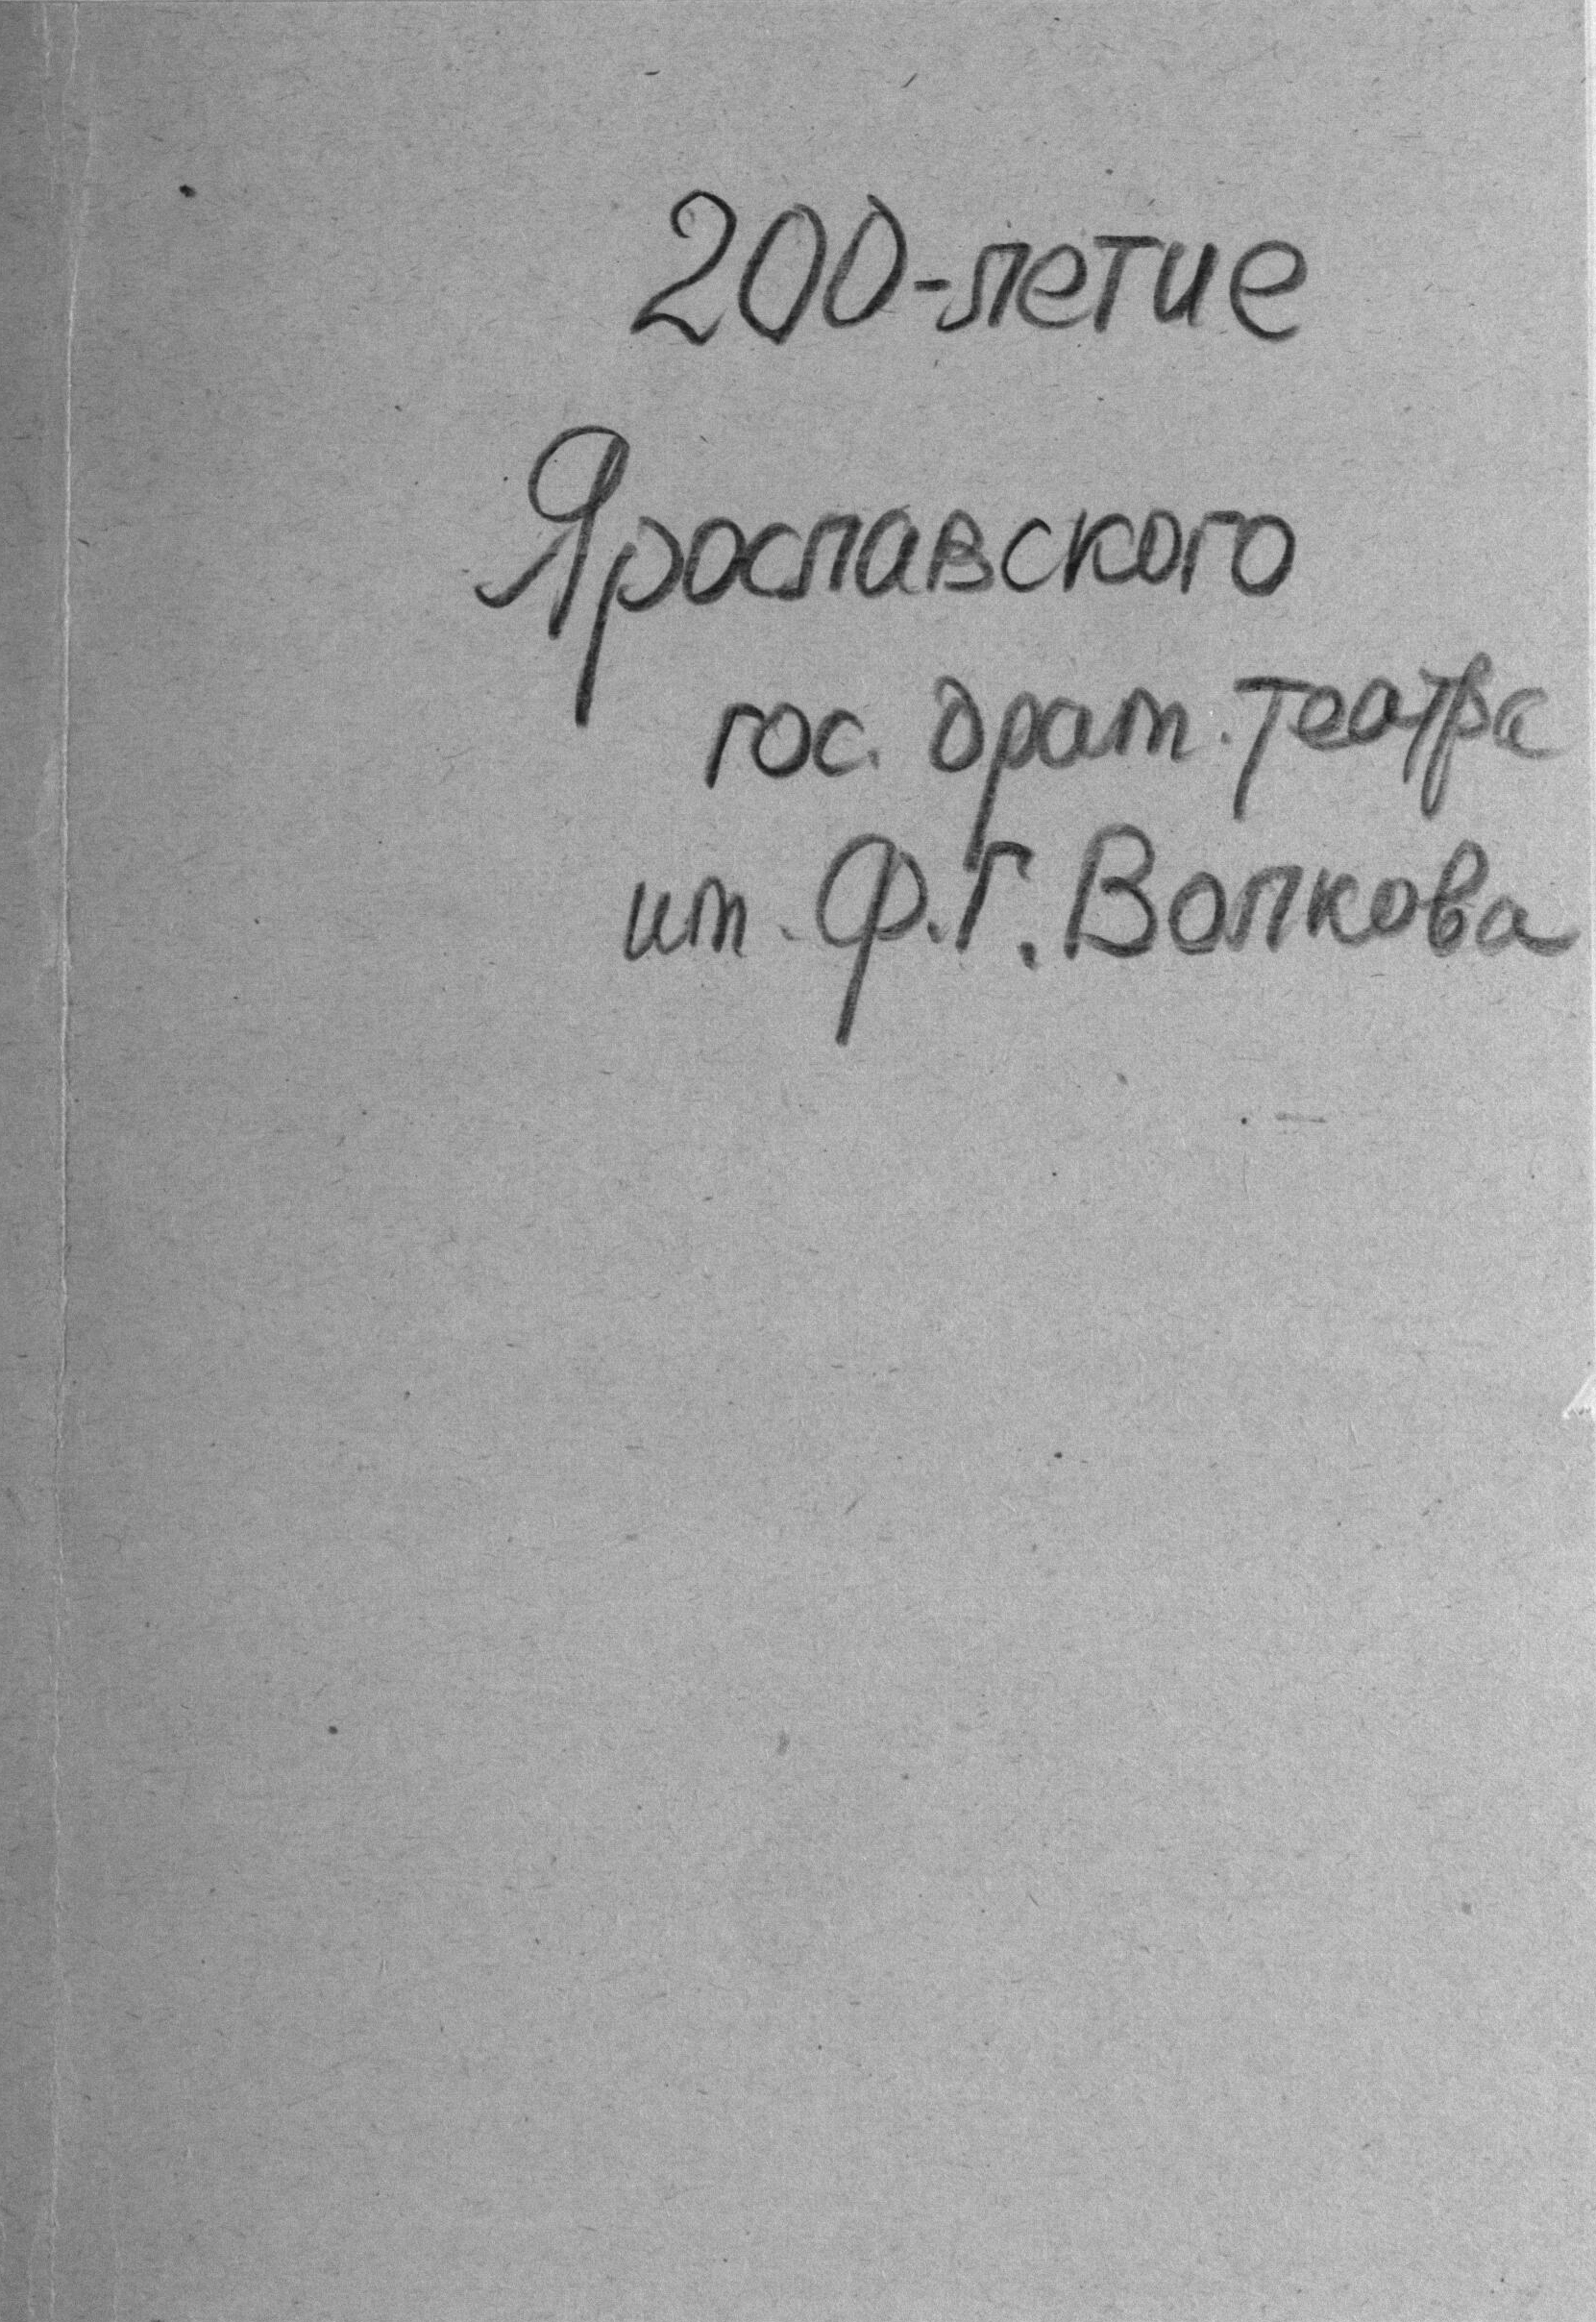 200-летие
Ярославского
гос. драм. театра
им. Ф.Г. Волкова